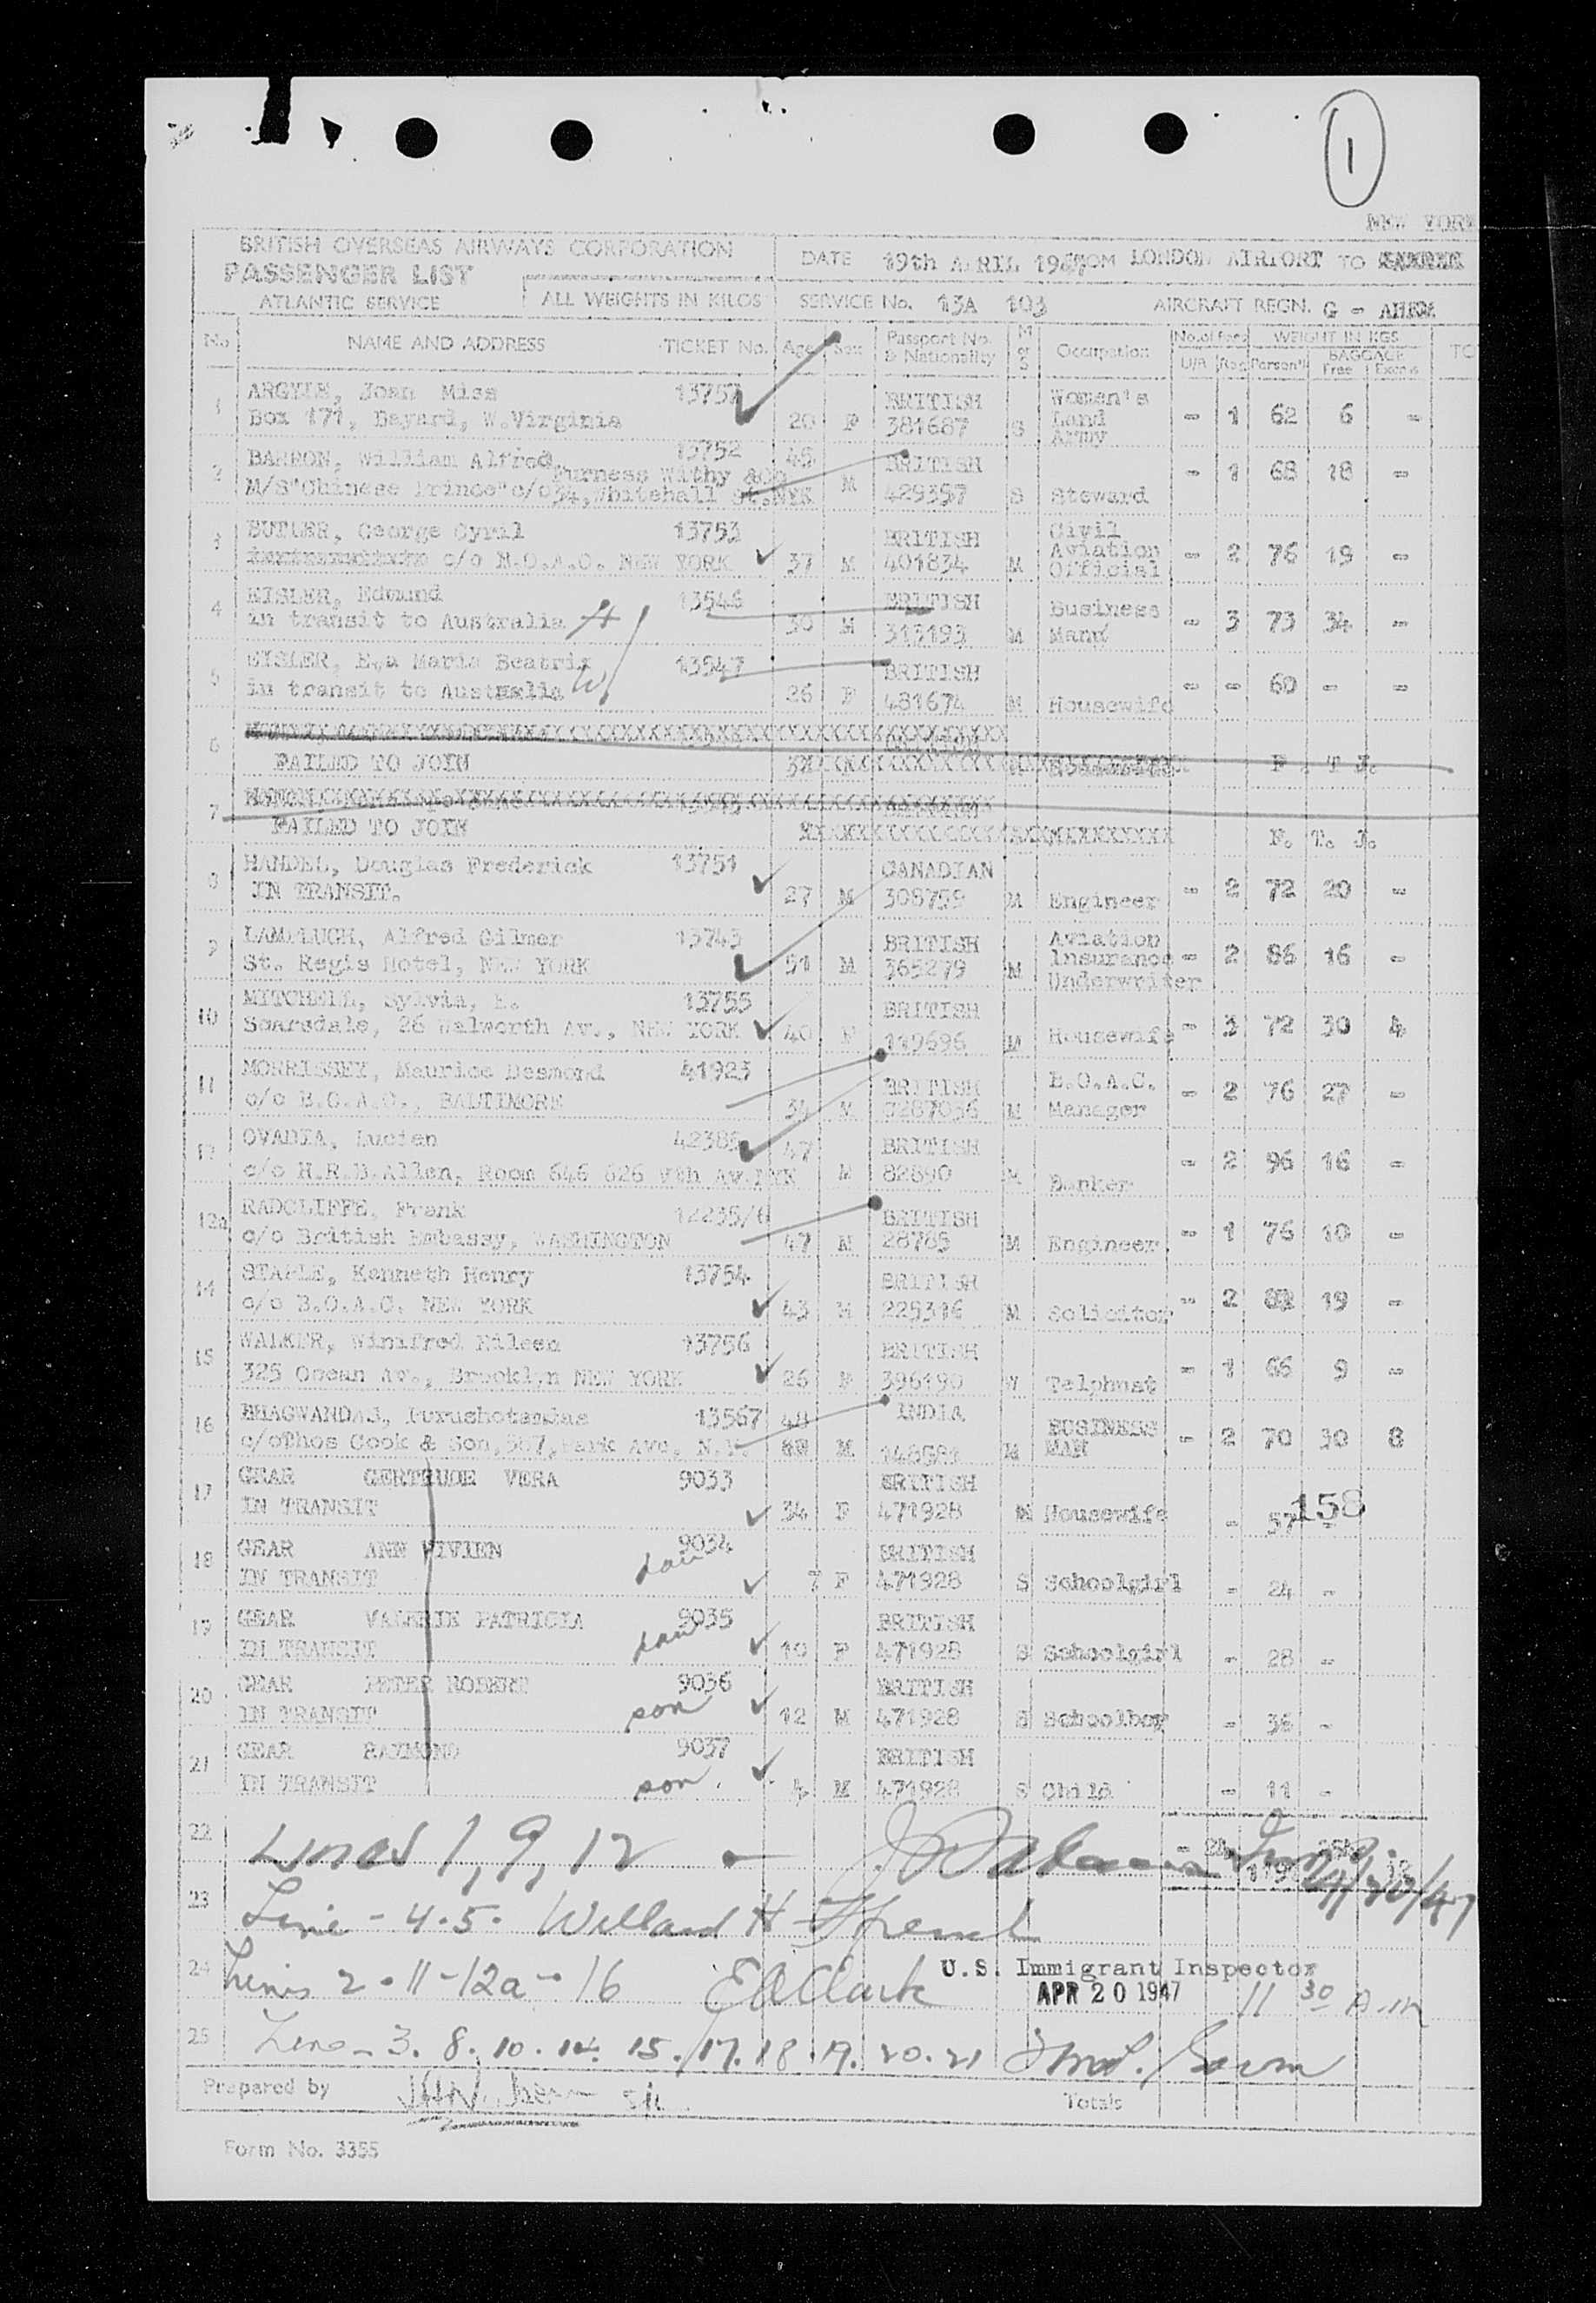 1
NEW YORK
BRITISH OVERSEAS AIRWAYS CORPORATION
PASSENGER LIST
ATLANTIC SERVICE
ALL WEIGHTS IN KILOS
DATE 19th APRIL 1947 FROM LONDON AIRPORT TO
SERVICE No. 13A 103 AIRCRAFT REGN. G - AHEM
No. NAME AND ADDRESS TICKET No. Age Sex Passport No. & Nationality M or S Occupation No. of Pcs. U/R Reg WEIGHT IN KGS Person'l BAGGAGE Free Excess TO
1 ARGYLE, Joan Miss 13757 BRITISH Women's
Box 171, Bayard, W.Virginia 20 F 381687 S Land Army - 1 62 6 -
2 BARRON, William Alfred 13752 45 BRITISH - 1 68 18 -
M/S"Chinese Prince"c/o Furness Withy &Co 34,Whitehall St.NYK M 429357 S Steward
3 BUTLER, George Cyril 13753 BRITISH Civil
c/o B.O.A.C. NEW YORK 37 M 401834 M Aviation Official - 2 76 19 -
4 EISLER, Edmund 13546 BRITISH Business
in transit to Australia H 30 M 313193 M Mann - 3 73 34 -
5 EISLER, Eva Maria Beatrix 13547 BRITISH
in transit to Australia W 26 F 481674 M Housewife - - 60 - -
6
FAILED TO JOIN F. T. J.
7
FAILED TO JOIN F. T. J.
8 HANDEL, Douglas Frederick 13751 CANADIAN
IN TRANSIT. 27 M 308759 M Engineer - 2 72 20 -
9 LAMPLUGH, Alfred Gilmer 13743 BRITISH Aviation
St. Regis Hotel, NEW YORK 51 M 365279 M Insurance Underwriter - 2 86 16 -
10 MITCHELL, Sylvia, E. 13755 BRITISH
Scarsdale, 26 Walworth Av., NEW YORK 40 F 119696 M Housewife - 3 72 30 4
11 MORRISSEY, Maurice Desmond 41923 BRITISH B.O.A.C.
c/o B.O.A.C., BALTIMORE 34 M M Manager - 2 76 27 -
12 OVADIA, Lucien 47 BRITISH
c/o H.R.B.Allen, Room 646 626 Vth Av.NYK M 82890 M Banker - 2 96 16 -
12a RADCLIFFE, Frank 12235/6 BRITISH
c/o British Embassy, WASHINGTON 47 M 28785 M Engineer - 1 76 10 -
14 STAPLE, Kenneth Henry 13754 BRITISH
c/o B.O.A.C. NEW YORK 43 M 225316 M Solicitor - 2 19 -
15 WALKER, Winifred Eileen 13756 BRITISH
325 Ocean Av., Brooklyn NEW YORK 26 F 396190 Telphnst - 1 66 9 -
16 BHAGWANDAS, Purushotamdas 13567 48 INDIA BUSINESS
c/oThos Cook & Son,587,Park Ave, N.Y. M 148581 M MAN - 2 70 30 8
17 GEAR GERTRUDE VERA 9033 BRITISH
IN TRANSIT 34 F 471928 M Housewife - 57 -
158
18 GEAR ANN VIVIEN 9034 dau BRITISH
IN TRANSIT 7 F 471928 S Schoolgirl - 24 -
19 GEAR VALERIE PATRICIA 9035 dau BRITISH
IN TRANSIT 10 F 471928 S Schoolgirl - 28 -
20 GEAR PETER ROBERT 9036 son BRITISH
IN TRANSIT 12 M 471928 S Schoolboy - 36 -
21 GEAR RAYMOND 9037 son BRITISH
IN TRANSIT 4 M 471928 S Child - 11 -
22 Lines 1, 9, 12 -
4/20/47
23 Line - 4.5. Willard H
24 Lines 2-11-12a-16 E A Clark
U.S. Immigrant Inspector
APR 20 1947 11 30 A.m
25 Line - 3. 8. 10. 14. 15. 17. 18. 19. 20. 21
Prepared by Totals
Form No. 3355